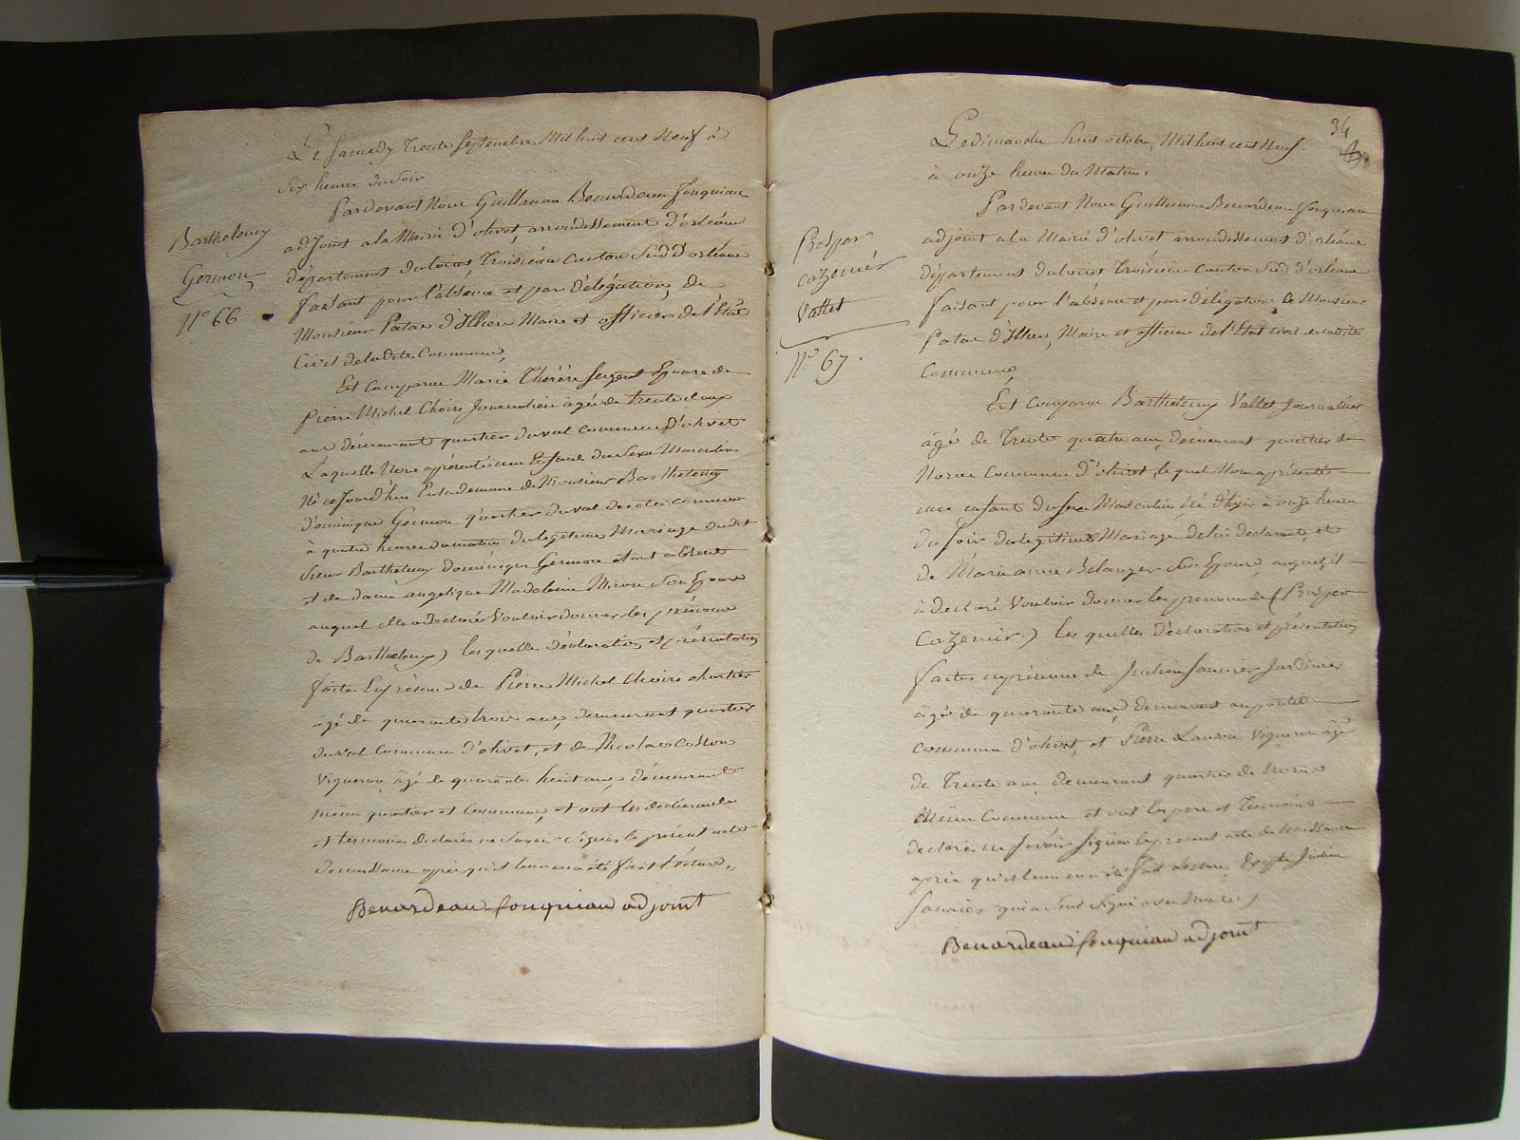 Le Samedy Trente Septembre Mil huit cent Neuf à
Six heures du Soir
Pardevant Nous Guillaume Benardeau Fouquiau
adjoint a la Mairie d'olivet, arrondissement d'orléans
département du loiret Troisième Canton Sud D'orléans
faisant pour l'absence et par délégation, de
Monsieur Patas d'Illiers Maire et officier de l'État
Civil de ladite Commune,
Bartholomy
Germon
N° 66
Est Comparue Marie Thérèse Sergent Epouse de
Pierre Michel Choire Journalier âgée de trente deux
ans demeurant quartier du val commune d'olivet
Laquelle Nous a présenté un Enfant du Sexe Masculin
Né ce Jourd'hui En la demeure de Monsieur Barthelemy
Dominique Germon quartier du val de cette commune
à quatre heures du matin du légitime Mariage dudit
Sieur Barthelemy Dominique Germon étant absent
et de dame angelique Madeleine Miron Son Epouse
auquel elle a déclaré Vouloir donner les prénoms
de Barthelemy) lesquelles déclaration et présentation
faites En présence de Pierre Michel Choire charretier
agé de quarante trois ans, demeurant quartier
du val Commune d'olivet, et de Nicolas Cosson
Vigneron âgé de quarante huit ans, demeurant
même quartier et Commune, et ont les déclarante
et temoins déclarés ne Savoir Signer le présent acte
de naissance après qu'il leur en a été fait lecture,,
Benardeau fouquiau adjoint
34
Le dimanche huit octobre, Mil huit cent Neuf
à onze heures du Matin.
Pardevant Nous Guillaume Benardeau fouquiau
adjoint a la Mairie d'olivet arrondissement d'orléans
département du loiret Troisième Canton Sud d'orléans
faisant pour l'absence et par délégation de Monsieur
Patas d'Illiers, Maire et officier de l'Etat Civil de ladite
Commune,
Prosper
Cazenier
Vallet
N° 67.
Est Comparu Barthelemy Vallet Journalier
âgé de Trente quatre ans, demeurant quartier de
Noras Commune d'olivet, lequel Nous a présenté
un enfant du Sexe Masculin Né d'hier à onze heures
du Soir du légitime Mariage de lui déclarant, et
de Marie anne Belanger Son Epouse, auquel il
a déclaré Vouloir donner les prenoms de (Prosper
Cazenier) lesquelles déclaration et présentation
faites en présence de Julien Saunier Jardinier
âgé de quarante ans, demeurant au poutil
Commune d'olivet, et Pierre Vigneron âgé
de Trente ans demeurant quartier de Noras
Même Commune et ont les pere et Temoins
declarés ne Savoir Signer le present acte de Naissance
après qu'il leur en a été fait lecture, Excepté Julien
Saunier qui a Seul signé avec Nous,
Benardeau fouquiau adjoint